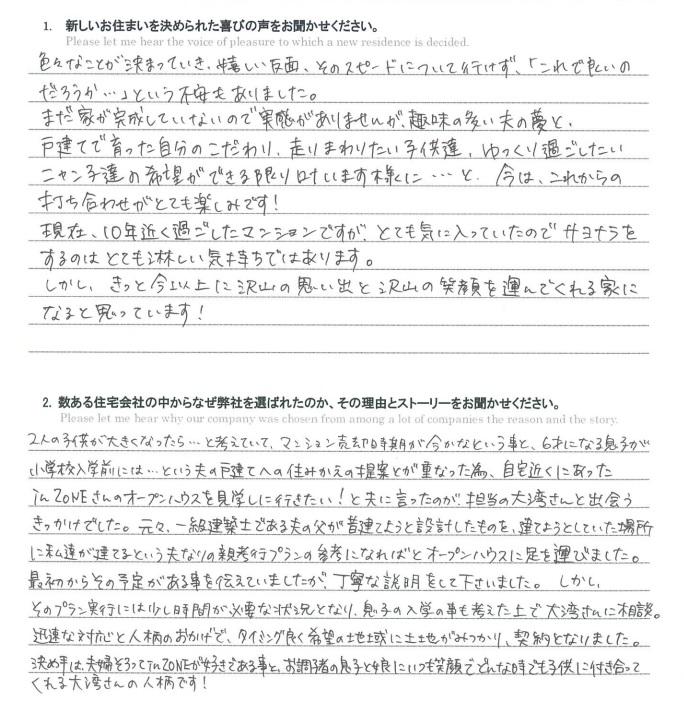 1. 新しいお住まいを決められた喜びの声をお聞かせください。
Please let me hear the voice of pleasure to which a new residence is decided.
色々なことが決まっていき、嬉しい反面、そのスピードについて行けず、「これで良いの
だろうか…」という不安もありました。
まだ家が完成していないので実感がありませんが、趣味の多い夫の夢と、
戸建てで育った自分のこだわり、走りまわりたい子供達、ゆっくり過ごしたい
ニャン子達の希望ができる限り叶います様に…と、今は、これからの
打ち合わせがとても楽しみです!
現在、10年近く過ごしたマンションですが、とても気に入っていたのでサヨナラを
するのはとても淋しい気持ちではあります。
しかし、きっと今以上に沢山の思い出と沢山の笑顔を運んでくれる家に
なると思っています!
2. 数ある住宅会社の中からなぜ弊社を選ばれたのか、その理由とストーリーをお聞かせください。
Please let me hear why our company was chosen from among a lot of companies the reason and the story.
2人の子供が大きくなったら…と考えていて、マンション売却時期が今かなという事と、6才になる息子が
小学校入学前には…という夫の戸建てへの住みかえの提案とが重なった為、自宅近くにあった
in ZONEさんのオープンハウスを見学しに行きたい!と夫に言ったのが、担当の大湾さんと出会う
きっかけでした。元々、一級建築士である夫の父が昔建てようと設計したものを、建てようとしていた場所
に私達が建てるという夫なりの親孝行プランの参考になればとオープンハウスに足を運びました。
最初からその予定がある事を伝えていましたが、丁寧な説明をして下さいました。しかし、
そのプラン実行には少し時間が必要な状況となり、息子の入学の事も考えた上で大湾さんに相談。
迅速な対応と人柄のおかげで、タイミング良く希望の地域に土地がみつかり、契約となりました。
決め手は、夫婦そろってin ZONEが好きである事と、お調子者の息子と娘にいつも笑顔でどんな時でも子供に付き合って
くれる大湾さんの人柄です!